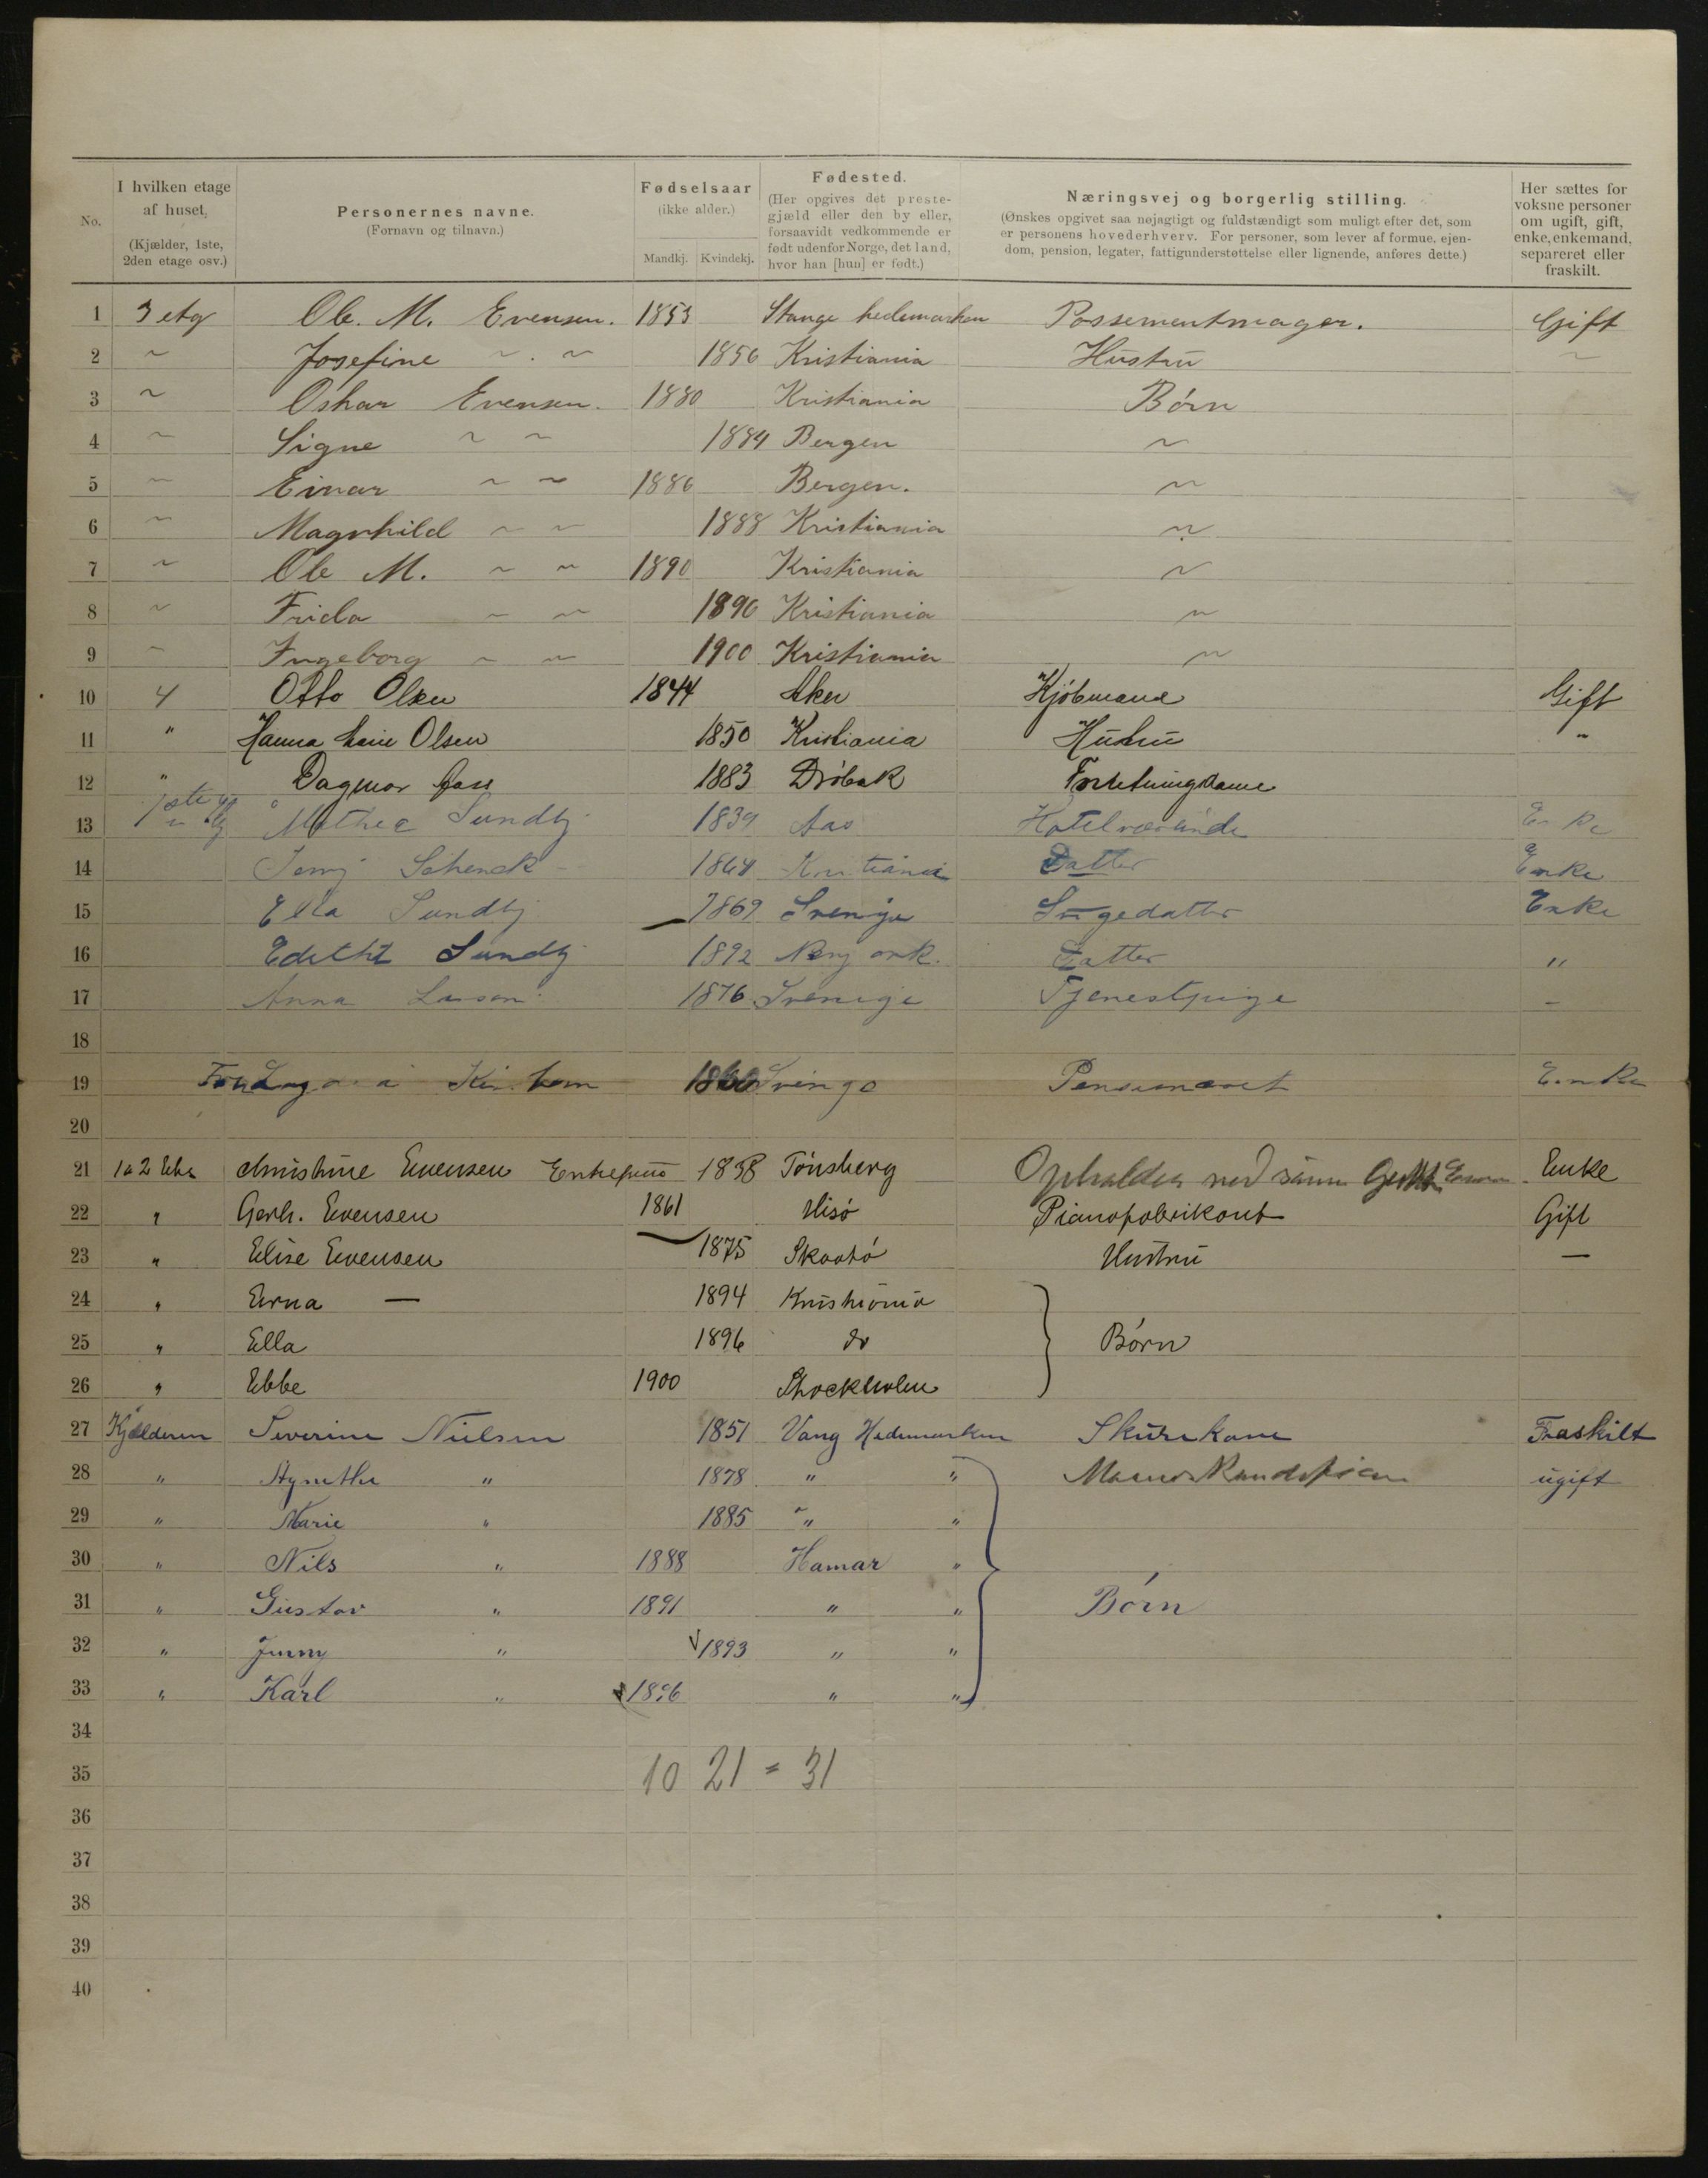 No.
I hvilken etage af huset, (Kjælder, 1ste, 2den etage osv.)
Personernes navne. (Fornavn og tilnavn.)
Fødselsaar (ikke alder.) Mandkj. Kvindekj.
Fødested. (Her opgives det prestegjæld eller den by eller, forsaavidt vedkommende er født udenfor Norge, det land, hvor han [hun] er født.)
Næringsvej og borgerlig stilling. (Ønskes opgivet saa nøjagtigt og fuldstændigt som muligt efter det, som er personens hovederhverv. For personer, som lever af formue, ejendom, pension, legater, fattigunderstøttelse eller lignende, anføres dette.)
Her sættes for voksne personer om ugift, gift, enke, enkemand, separeret eller fraskilt.
1 3 etg Ole. M. Evensen. 1853 Stange hedemarken Possementmager. Gift
2 ~ Josefine ~ . ~ 1856 Kristiania Hustru ~
3 ~ Oskar Evensen. 1880 Kristiania Børn
4 ~ Signe ~ ~ 1884 Bergen ~
5 ~ Einar ~ ~ 1886 Bergen. ~
6 ~ Magnhild ~ ~ 1888 Kristiania ~
7 ~ Ole M. ~ ~ 1890 Kristiania ~
8 ~ Frida ~ ~ 1890 Kristiania ~
9 ~ Ingeborg ~ ~ 1900 Kristiania ~
10 4 Otto Olsen 1844 Aker Kjøbmand Gift
11 " Hanna Marie Olsen 1850 Kristiania Hustru "
12 " Dagmar 1883 Drøbak Forretningsdame
13 1ste Mathea Sundby 1839 Aas Enke
14 Jenny Schenck 1864 Kristiania Datter Enke
15 Ella Sundby 1869 Sverige Enke
16 Sundby 1892 Datter "
17 Anna Larsen 1876 Sverige Tjenestpige -
18
19 Fru 1860 Sverige Enke
20
21 1 a 2 Christine Evensen Enkefrue 1838 Tønsberg Opholder sønn Enke
22 " Gerh. Evensen 1861 Hisø Pianofabrikant Gift
23 " Elise Evensen 1875 Skaatø Hustru —
24 " Erna — 1894 Kristiania
25 " Ella 1896 do Børn
26 " Ebbe 1900 Stockholm
27 Kjælderen Severine Nielsen 1851 Vang Hedemarken Skurekone Fraskilt
28 " Agnethe " 1878 " " ugift
29 " Marie " 1885 " "
30 " Nils " 1888 Hamar "
31 " Gustav " 1891 " " Børn
32 " Jenny " 1893 " "
33 " Karl " 1896 " "
34
35 10 21 = 31
36
37
38
39
40